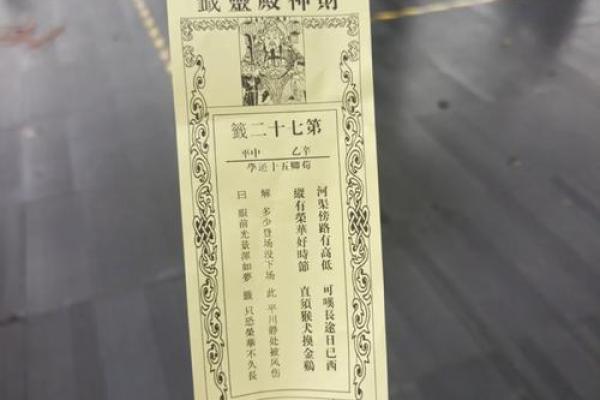 財神殿靈籤
第七十二籤
辛乙 中平
荀卿五十遊學
河渠傍路有高低 可嘆長途日已西
縱有榮華好時節 直須猴犬換金鷄
解 多少登场没下场 此 平川静处被风伤
曰 眼前光景渾如夢 籤 只恐榮華不久長